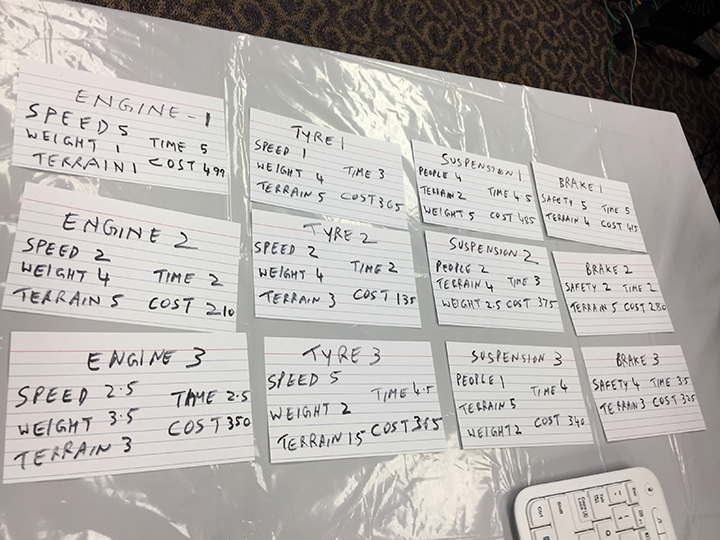 ENGINE-1
SPEED 5
WEIGHT 1 TIME 5
TERRAIN 1 COST 499
TYRE 1
SPEED 1
WEIGHT 4 TIME 3
TERRAIN 5 COST 365
SUSPENSION 1
PEOPLE 4
TERRAIN 2 TIME 4.5
WEIGHT 5 COST 485
BRAKE 1
SAFETY 5 TIME 5
TERRAIN 4 COST
ENGINE 2
SPEED 2
WEIGHT 4 TIME 2
TERRAIN 5 COST 210
TYRE 2
SPEED 2
WEIGHT 4 TIME 2
TERRAIN 3 COST 135
SUSPENSION 2
PEOPLE 2
TERRAIN 4 TIME 3
WEIGHT 2.5 COST 375
BRAKE 2
SAFETY 2 TIME 2
TERRAIN 5 COST
ENGINE 3
SPEED 2.5 TIME 2.5
WEIGHT 3.5 COST 350
TERRAIN 3
TYRE 3
SPEED 5
WEIGHT 2 TIME 4.5
TERRAIN 1.5 COST
SUSPENSION 3
PEOPLE 1 TIME 4
TERRAIN 5
WEIGHT 2 COST 340
BRAKE 3
SAFETY 4 TIME 3.5
TERRAIN 3 COST 325
Ctrl